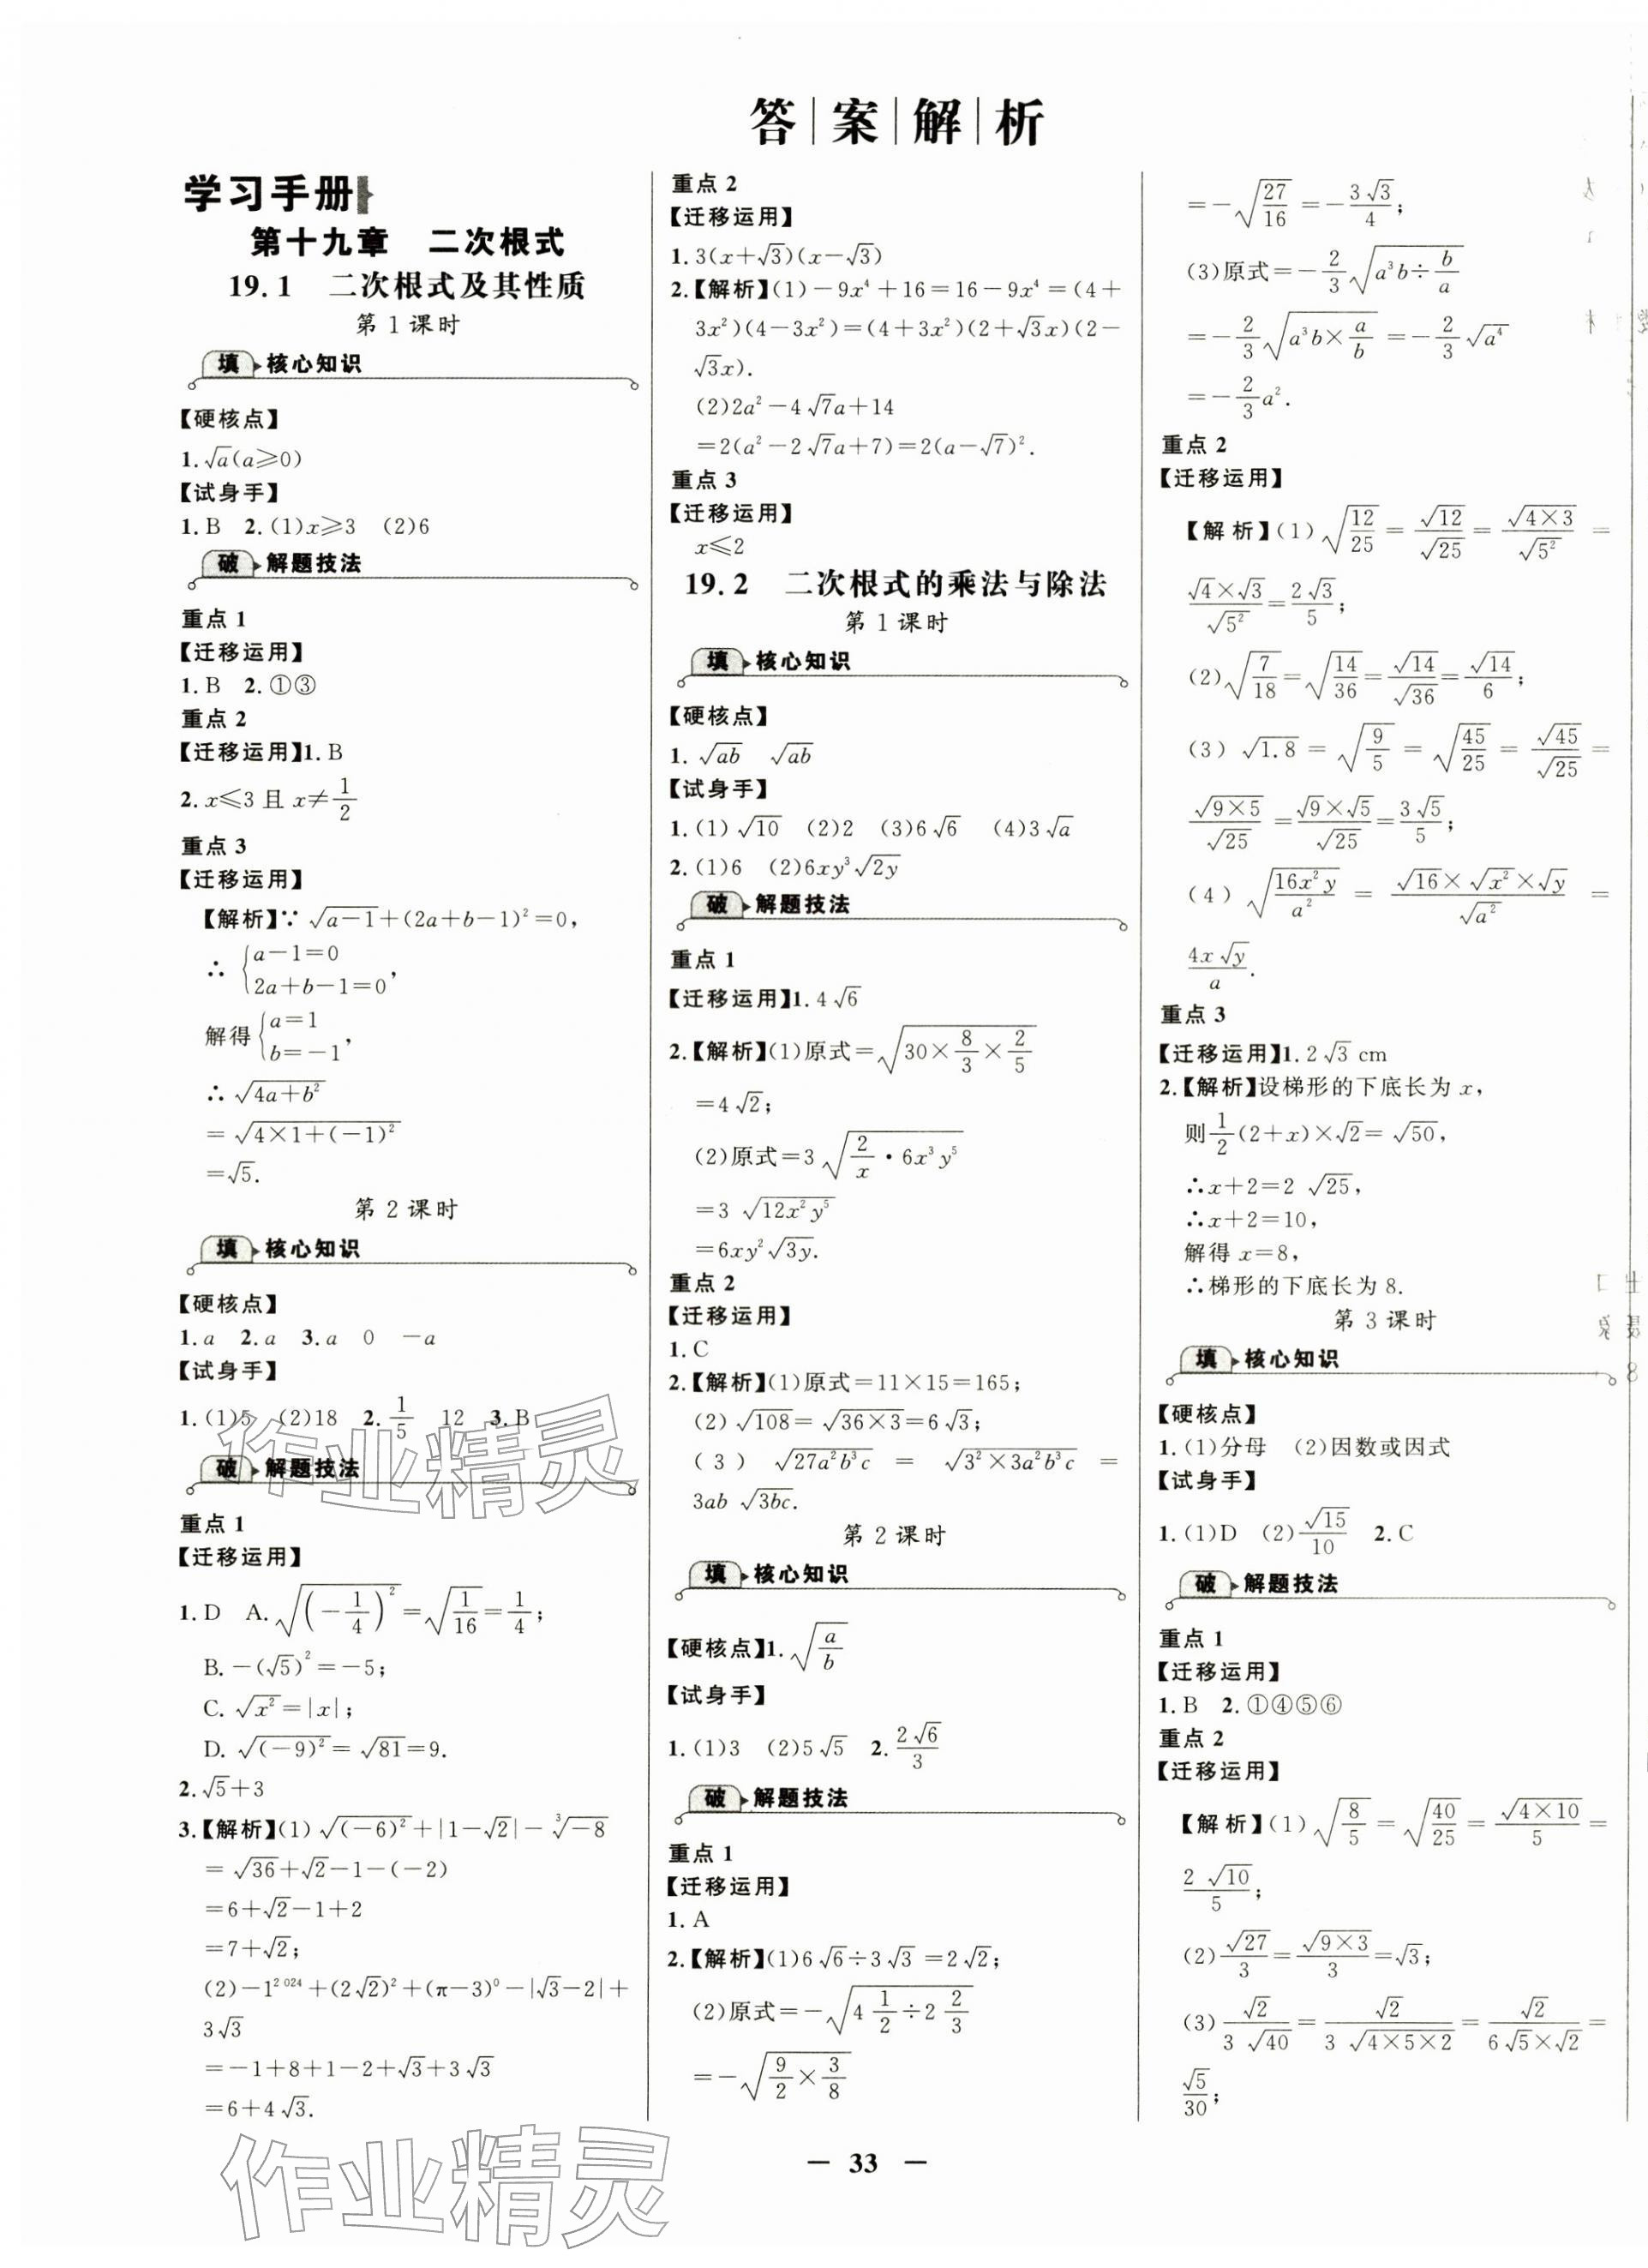 答案解析
学习手册
第十九章　二次根式
19.1　二次根式及其性质
第1课时
填 核心知识
【硬核点】
1.√a(a≥0)
【试身手】
1.B　2.(1)x≥3　(2)6
破 解题技法
重点1
【迁移运用】
1.B　2.①③
重点2
【迁移运用】1.B
2.x≤3且x≠1/2
重点3
【迁移运用】
【解析】∵√(a-1)+(2a+b-1)²=0,
∴{a-1=0
2a+b-1=0,
解得{a=1
b=-1,
∴√(4a+b²)
=√(4×1+(-1)²)
=√5.
第2课时
填 核心知识
【硬核点】
1.a　2.a　3.a　0　-a
【试身手】
1.(1)5　(2)18　2.1/5　12　3.B
破 解题技法
重点1
【迁移运用】
1.D　A.√((-1/4)²)=√(1/16)=1/4;
B.-(√5)²=-5;
C.√(x²)=|x|;
D.√((-9)²)=√81=9.
2.√5+3
3.【解析】(1)√((-6)²)+|1-√2|-³√(-8)
=√36+√2-1-(-2)
=6+√2-1+2
=7+√2;
(2)-1²⁰²⁴+(2√2)²+(π-3)⁰-|√3-2|+
3√3
=-1+8+1-2+√3+3√3
=6+4√3.
重点2
【迁移运用】
1.3(x+√3)(x-√3)
2.【解析】(1)-9x⁴+16=16-9x⁴=(4+
3x²)(4-3x²)=(4+3x²)(2+√3x)(2-
√3x).
(2)2a²-4√7a+14
=2(a²-2√7a+7)=2(a-√7)².
重点3
【迁移运用】
x≤2
19.2　二次根式的乘法与除法
第1课时
填 核心知识
【硬核点】
1.√(ab)　√(ab)
【试身手】
1.(1)√10　(2)2　(3)6√6　(4)3√a
2.(1)6　(2)6xy³√(2y)
破 解题技法
重点1
【迁移运用】1.4√6
2.【解析】(1)原式=√(30×8/3×2/5)
=4√2;
(2)原式=3√(2/x·6x³y⁵)
=3√(12x²y⁵)
=6xy²√(3y).
重点2
【迁移运用】
1.C
2.【解析】(1)原式=11×15=165;
(2)√108=√(36×3)=6√3;
(3)√(27a²b³c)=√(3²×3a²b³c)=
3ab√(3bc).
第2课时
填 核心知识
【硬核点】1.√(a/b)
【试身手】
1.(1)3　(2)5√5　2.2√6/3
破 解题技法
重点1
【迁移运用】
1.A
2.【解析】(1)6√6÷3√3=2√2;
(2)原式=-√(4 1/2÷2 2/3)
=-√(9/2×3/8)
=-√(27/16)=-3√3/4;
(3)原式=-2/3√(a³b÷b/a)
=-2/3√(a³b×a/b)=-2/3√(a⁴)
=-2/3a².
重点2
【迁移运用】
【解析】(1)√(12/25)=√12/√25=√(4×3)/√(5²)=
√4×√3/√(5²)=2√3/5;
(2)√(7/18)=√(14/36)=√14/√36=√14/6;
(3)√1.8=√(9/5)=√(45/25)=√45/√25=
√(9×5)/√25=√9×√5/√25=3√5/5;
(4)√(16x²y/a²)=√16×√(x²)×√y/√(a²)=
4x√y/a.
重点3
【迁移运用】1.2√3 cm
2.【解析】设梯形的下底长为x,
则1/2(2+x)×√2=√50,
∴x+2=2√25,
∴x+2=10,
解得x=8,
∴梯形的下底长为8.
第3课时
填 核心知识
【硬核点】
1.(1)分母　(2)因数或因式
【试身手】
1.(1)D　(2)√15/10　2.C
破 解题技法
重点1
【迁移运用】
1.B　2.①④⑤⑥
重点2
【迁移运用】
【解析】(1)√(8/5)=√(40/25)=√(4×10)/5=
2√10/5;
(2)√27/3=√(9×3)/3=√3;
(3)√2/(3√40)=√2/(3√(4×5×2))=√2/(6√5×√2)=
√5/30;
— 33 —
作业精灵
作业精灵